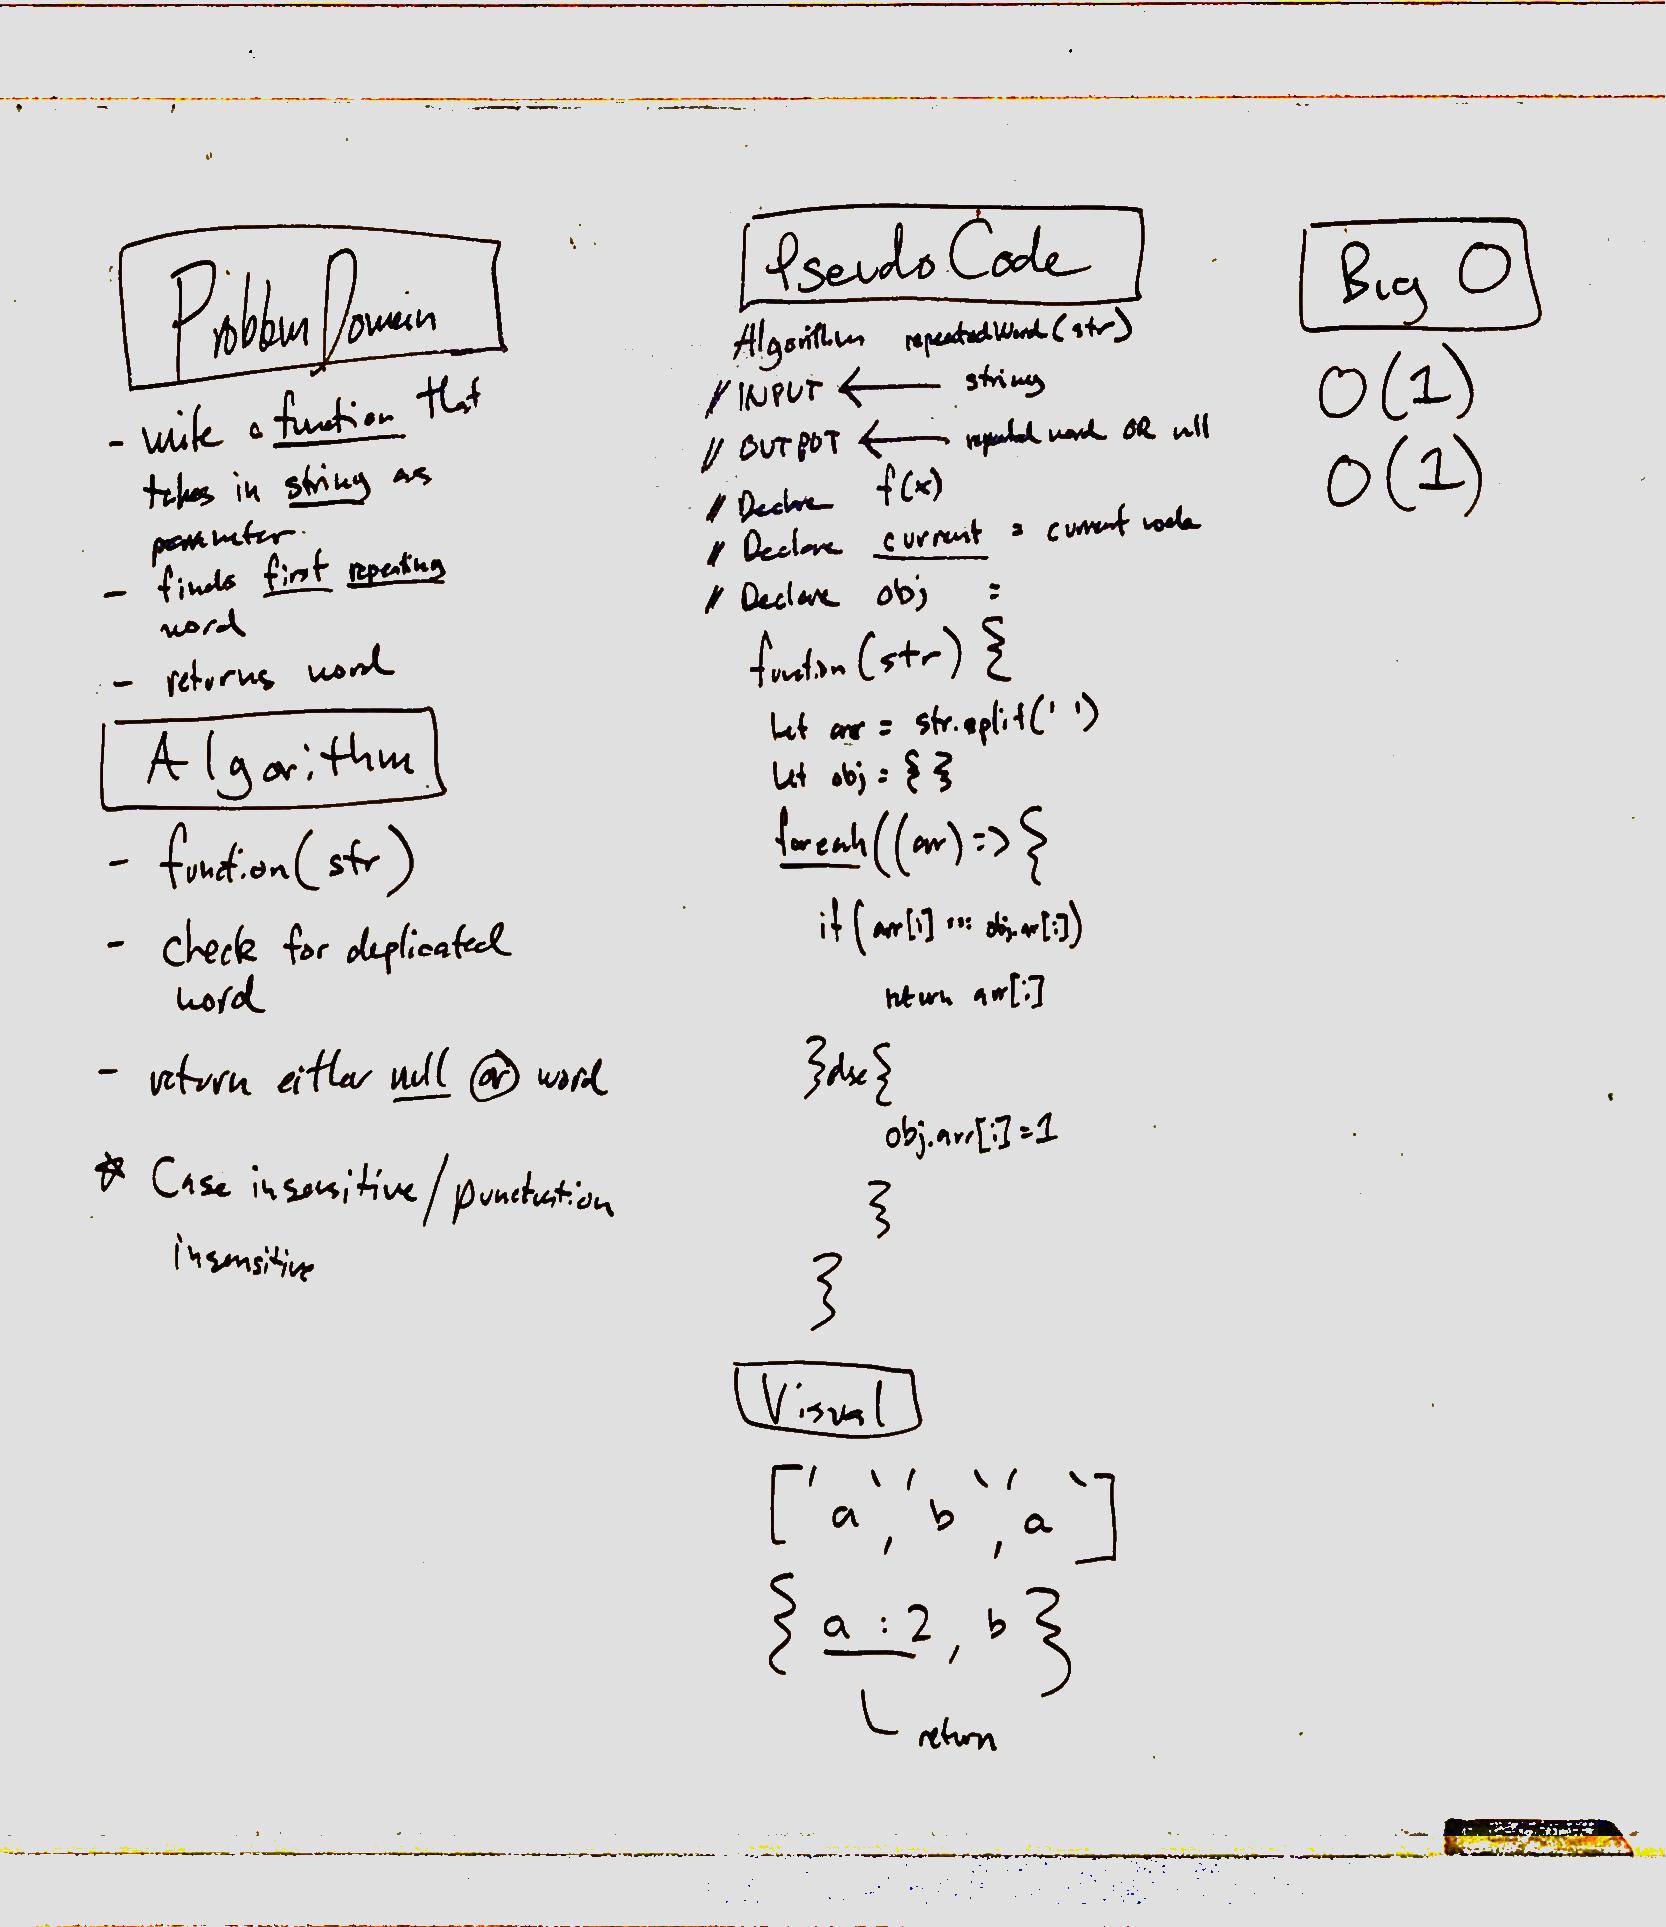 Problem Domain
- write a function that
takes in string as
parameter.
- finds first repeating
word
- returns word
Algorithm
- function(str)
- check for duplicated
word
- return either null or word
☆ Case insensitive/punctuation
insensitive
Pseudo Code
Algorithm repeatedWord(str)
// INPUT ← string
// OUTPUT ← repeated word OR null
// Declare f(x)
// Declare current = current node
// Declare obj =
function(str) {
let arr = str.split(' ')
let obj = { }
foreach((arr) => {
if (arr[i] === obj.arr[i])
return arr[i]
}else{
obj.arr[i]=1
}
}
Visual
['a', 'b', 'a']
{ a : 2, b }
return
Big O
O(1)
O(1)